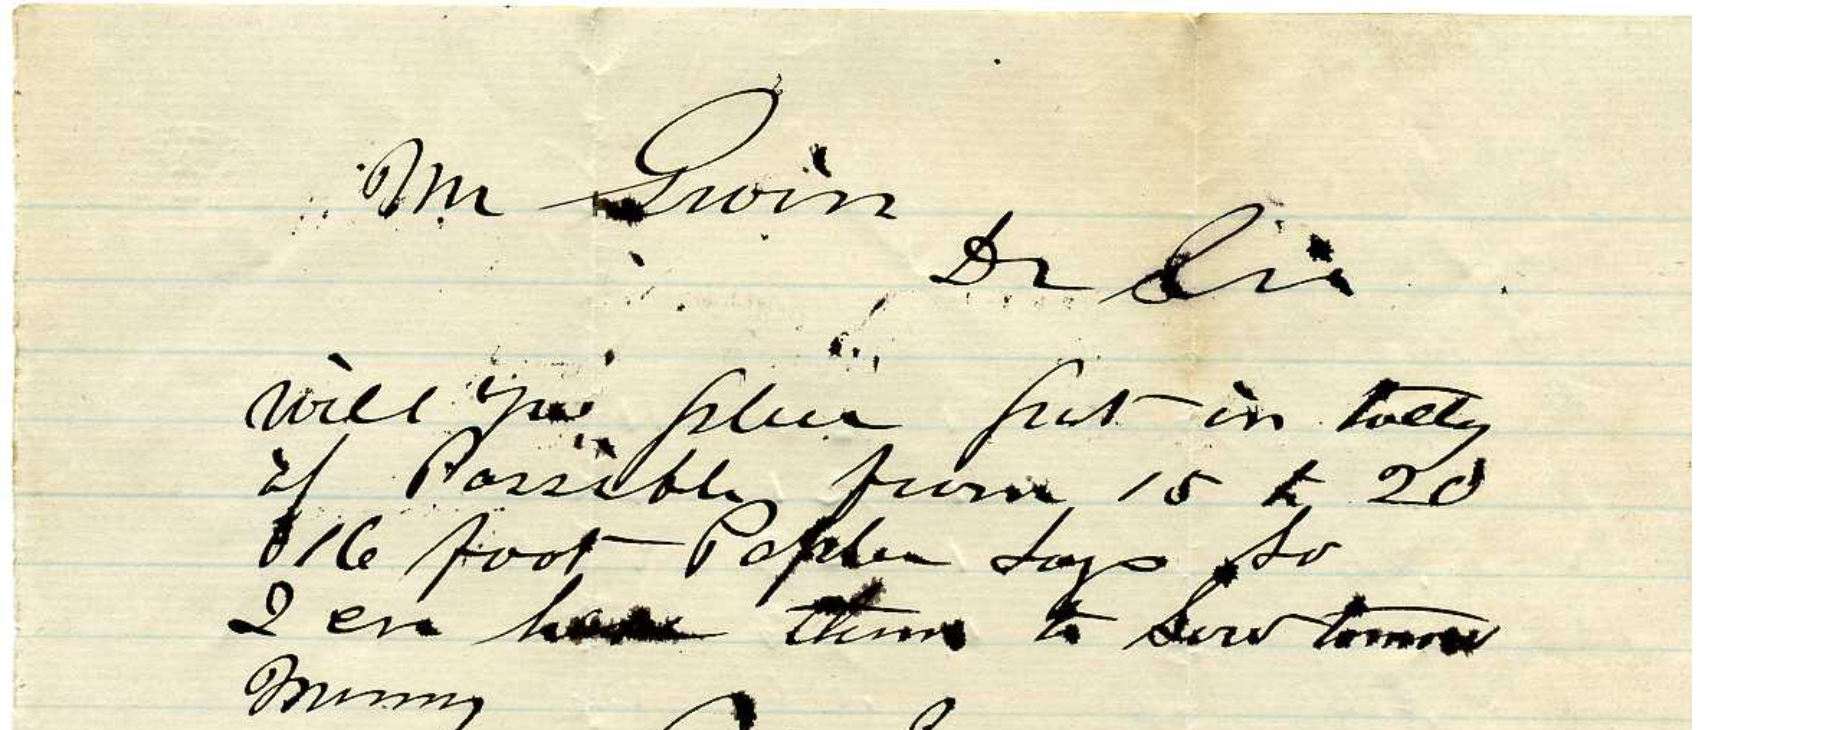 Mr Irwin
Dr Sir
Will you please put in today
if Possibly from 15 to 20
16 foot Popler Logs So
I can have them to Sow tomorow
Morning